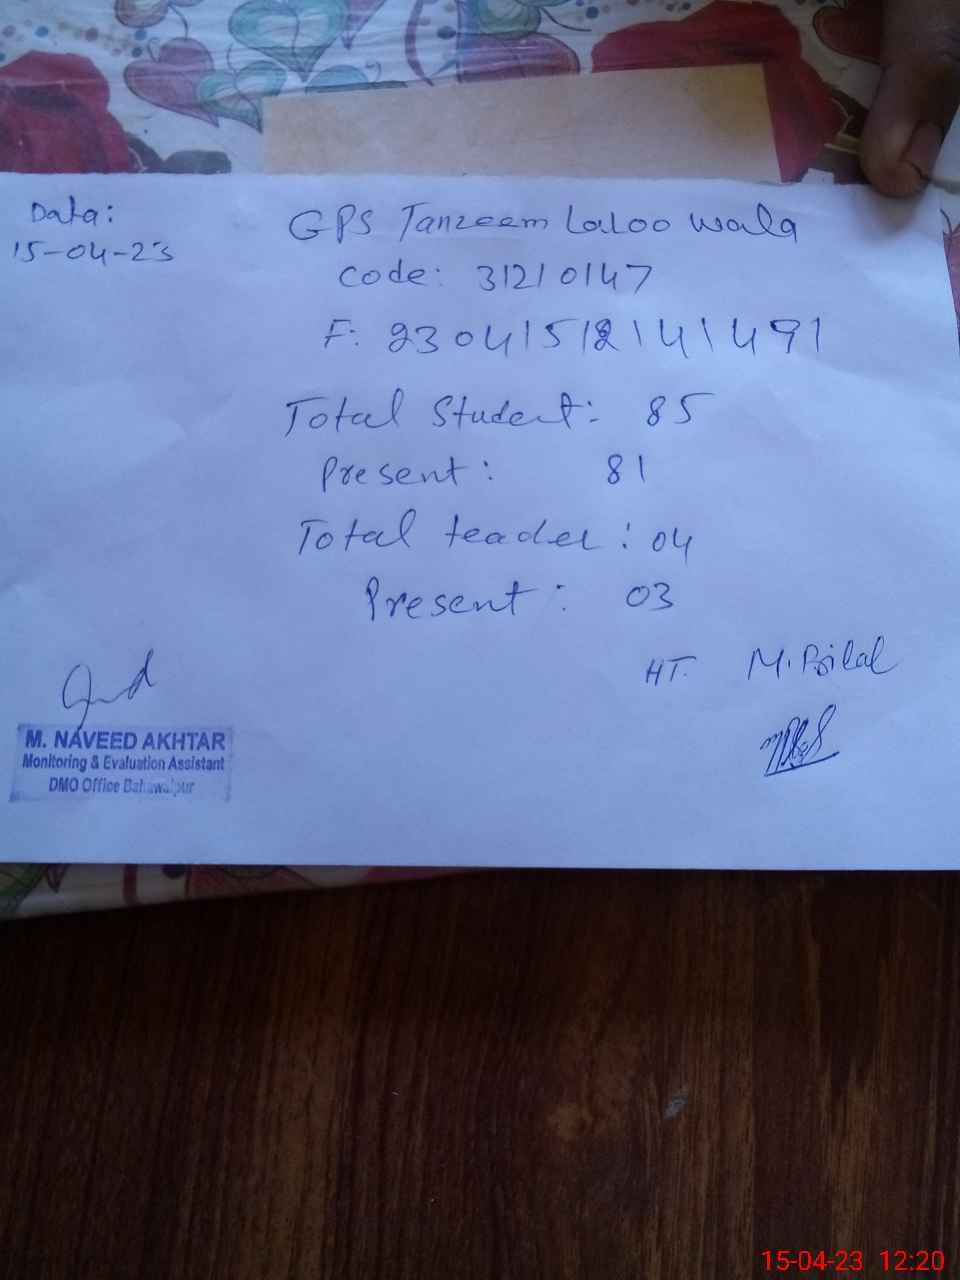 Data:
15-04-23
GPS Tanzeem Laloo wala
Code: 31210147
F: 23041512141491
Total Student: 85
Present: 81
Total teader: 04
Present: 03
HT. M. Bilal
M. NAVEED AKHTAR
Monitoring & Evaluation Assistant
DMO Office Bahawalpur
15-04-23 12:20